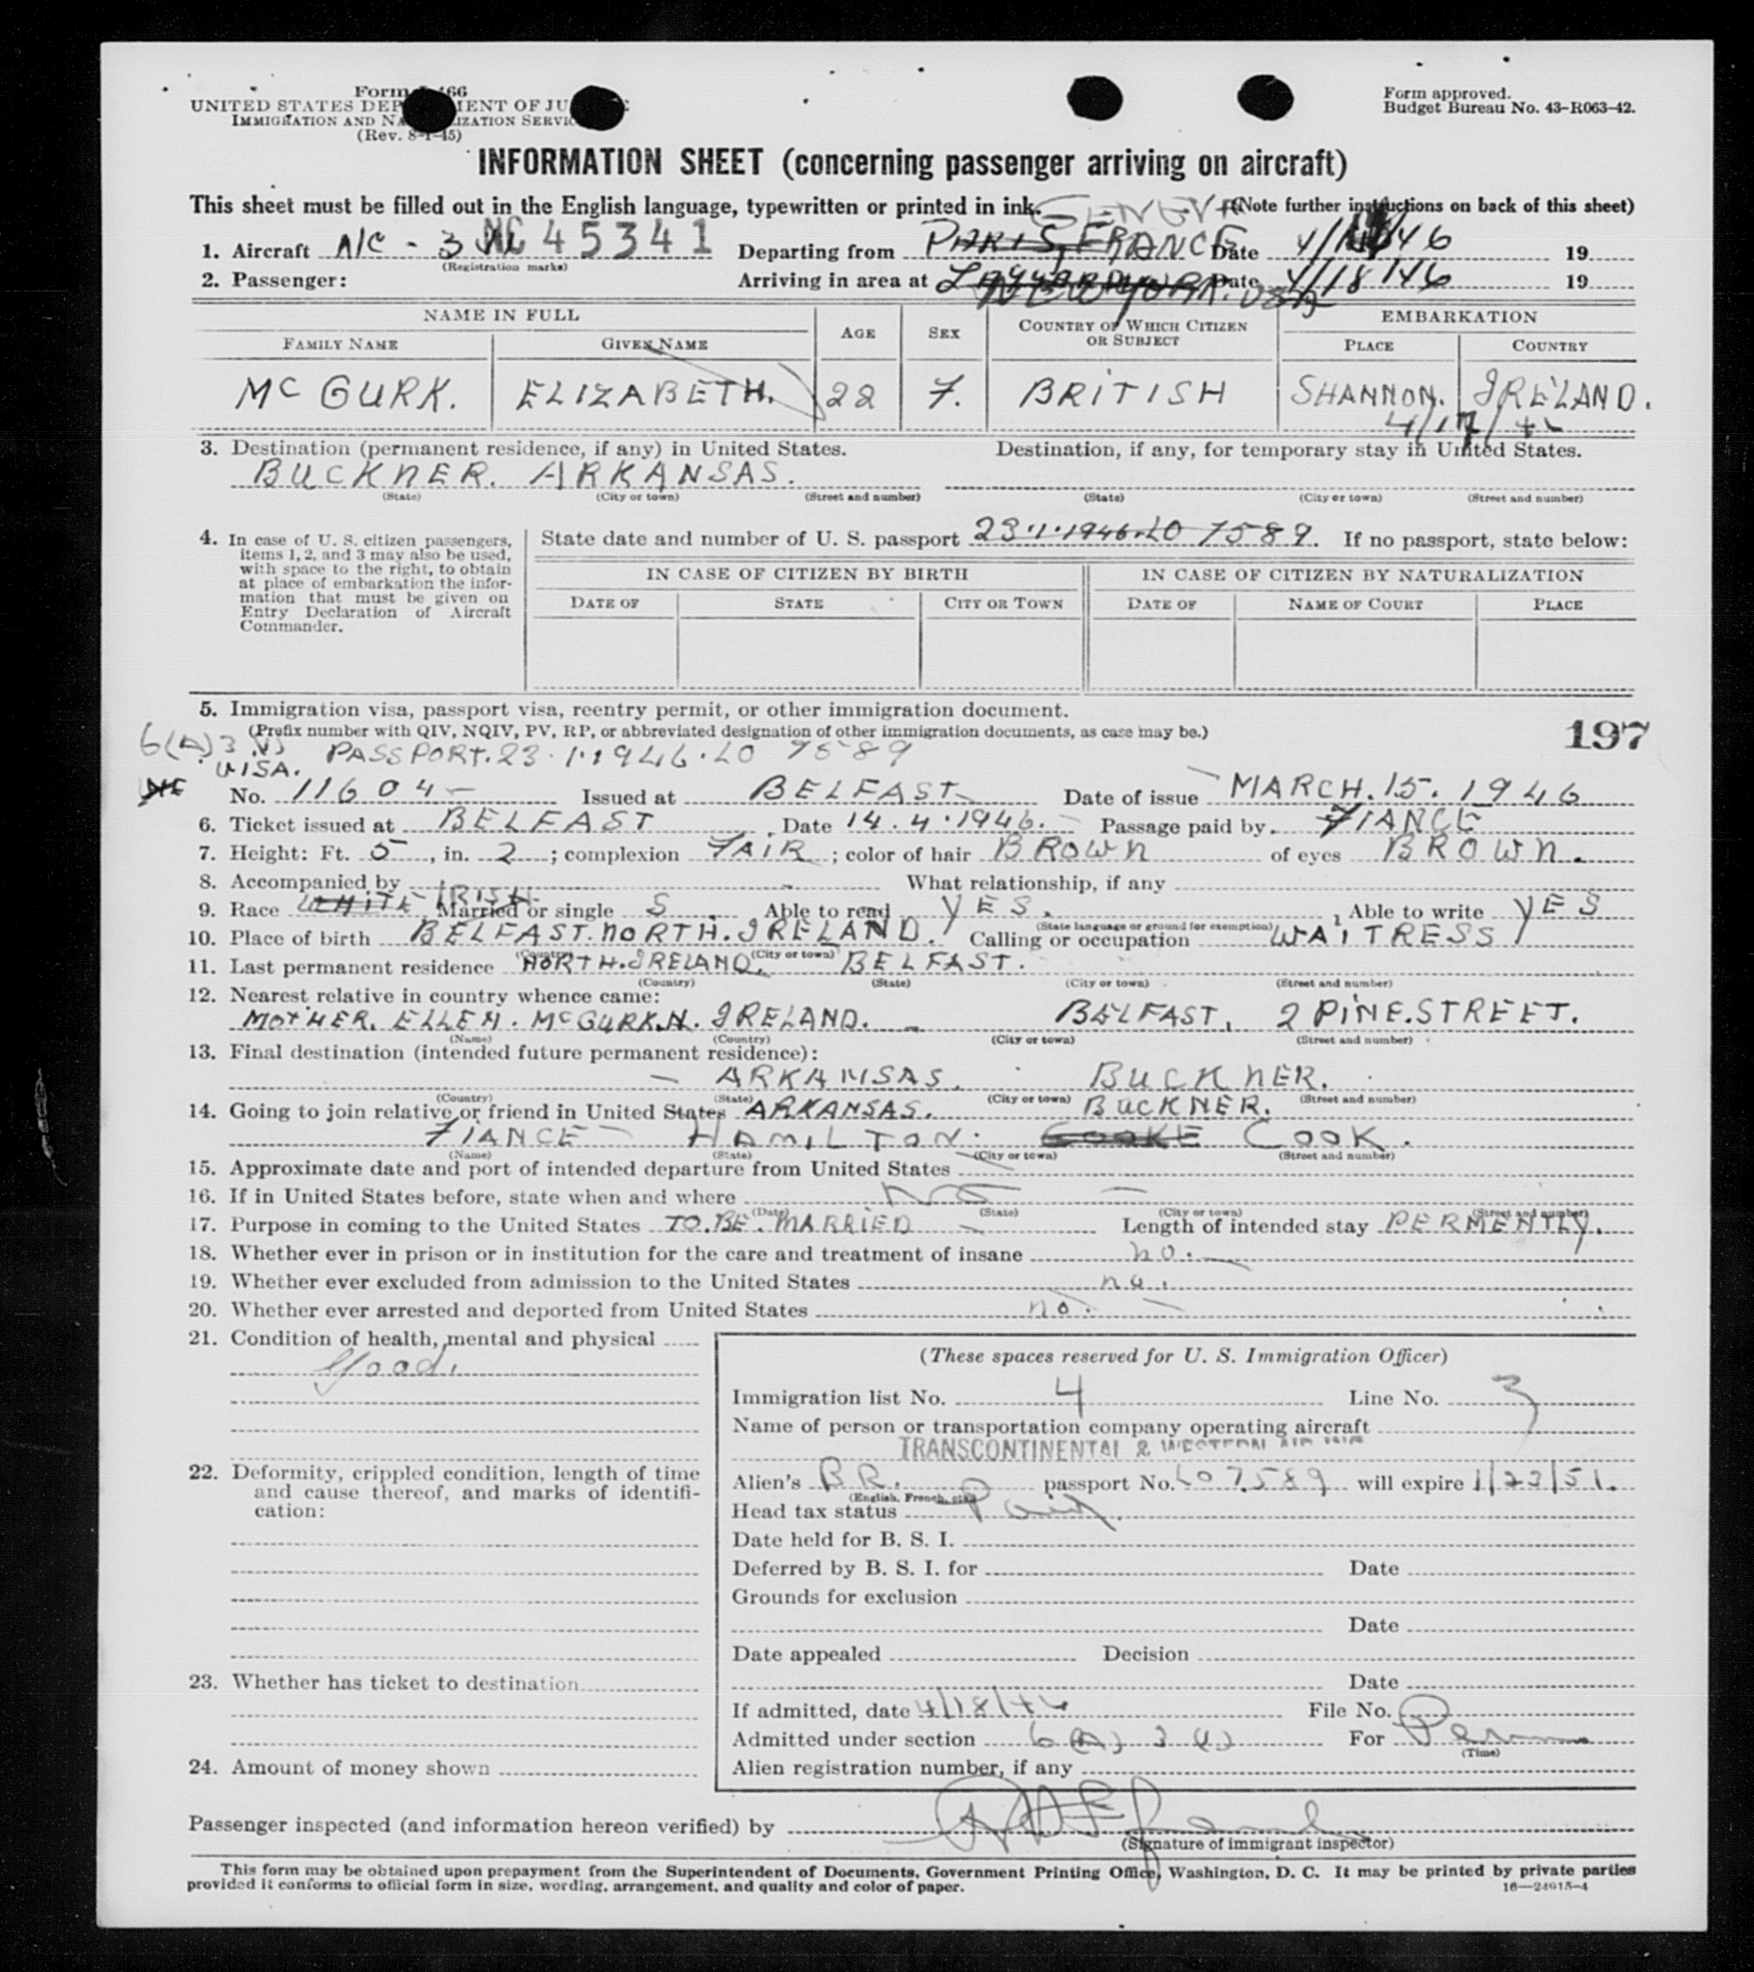 Form 66
UNITED STATES DEP MENT OF JU
IMMIGRATION AND NA IZATION SERVIC
(Rev. 8-1-45)
Form approved.
Budget Bureau No. 43-R063-42.
INFORMATION SHEET (concerning passenger arriving on aircraft)
This sheet must be filled out in the English language, typewritten or printed in ink. GENEVA (Note further instructions on back of this sheet)
1. Aircraft A/C - 3 NC 45341 Departing from PARIS, FRANCE Date 4/ /46 19
(Registration marks)
2. Passenger: Arriving in area at NEW YORK. USA Date 4/18/46 19
NAME IN FULL AGE SEX COUNTRY OF WHICH CITIZEN OR SUBJECT EMBARKATION
FAMILY NAME GIVEN NAME PLACE COUNTRY
McGURK. ELIZABETH. 22 F. BRITISH SHANNON. IRELAND.
4/17/46
3. Destination (permanent residence, if any) in United States. Destination, if any, for temporary stay in United States.
BUCKNER. ARKANSAS.
(State) (City or town) (Street and number) (State) (City or town) (Street and number)
4. In case of U. S. citizen passengers, items 1, 2, and 3 may also be used, with space to the right, to obtain at place of embarkation the information that must be given on Entry Declaration of Aircraft Commander.
State date and number of U. S. passport 23.1.1946.LO 7589. If no passport, state below:
IN CASE OF CITIZEN BY BIRTH IN CASE OF CITIZEN BY NATURALIZATION
DATE OF STATE CITY OR TOWN DATE OF NAME OF COURT PLACE
5. Immigration visa, passport visa, reentry permit, or other immigration document.
(Prefix number with QIV, NQIV, PV, RP, or abbreviated designation of other immigration documents, as case may be.) 197
6(A)3 VJ PASSPORT. 23.1.1946.LO 7589
VISA.
No. 11604 Issued at BELFAST Date of issue MARCH. 15. 1946
6. Ticket issued at BELFAST, Date 14.4.1946. Passage paid by. FIANCE
7. Height: Ft. 5, in. 2; complexion FAIR; color of hair BROWN of eyes BROWN.
8. Accompanied by What relationship, if any
9. Race WHITE IRISH, Married or single S. Able to read YES., Able to write YES
(State language or ground for exemption)
10. Place of birth BELFAST. NORTH. IRELAND. Calling or occupation WAITRESS
(Country) (City or town)
11. Last permanent residence NORTH. IRELAND. BELFAST.
(Country) (State) (City or town) (Street and number)
12. Nearest relative in country whence came:
MOTHER. ELLEN. McGURK. N. IRELAND. BELFAST, 2 PINE. STREET.
(Name) (Country) (City or town) (Street and number)
13. Final destination (intended future permanent residence):
ARKANSAS. BUCKNER.
(Country) (State) (City or town) (Street and number)
14. Going to join relative or friend in United States ARKANSAS. BUCKNER.
FIANCE HAMILTON. COOKE COOK.
(Name) (State) (City or town) (Street and number)
15. Approximate date and port of intended departure from United States
16. If in United States before, state when and where NO
(Date) (State) (City or town) (Street and number)
17. Purpose in coming to the United States TO. BE. MARRIED Length of intended stay PERMENTLY.
18. Whether ever in prison or in institution for the care and treatment of insane no.
19. Whether ever excluded from admission to the United States no.
20. Whether ever arrested and deported from United States no.
21. Condition of health, mental and physical
Good.
22. Deformity, crippled condition, length of time and cause thereof, and marks of identification:
23. Whether has ticket to destination
24. Amount of money shown
(These spaces reserved for U. S. Immigration Officer)
Immigration list No. 4 Line No. 3
Name of person or transportation company operating aircraft
TRANSCONTINENTAL & WESTERN AIR INC
Alien's BR. passport No. LO7589 will expire 1/23/51.
(English, French, etc.)
Head tax status Paid.
Date held for B. S. I.
Deferred by B. S. I. for Date
Grounds for exclusion
Date
Date appealed Decision
Date
If admitted, date 4/18/46 File No.
Admitted under section 6(A)3 VJ For Perm
(Time)
Alien registration number, if any
Passenger inspected (and information hereon verified) by
(Signature of immigrant inspector)
This form may be obtained upon prepayment from the Superintendent of Documents, Government Printing Office, Washington, D. C. It may be printed by private parties
provided it conforms to official form in size, wording, arrangement, and quality and color of paper.
16—24615-4